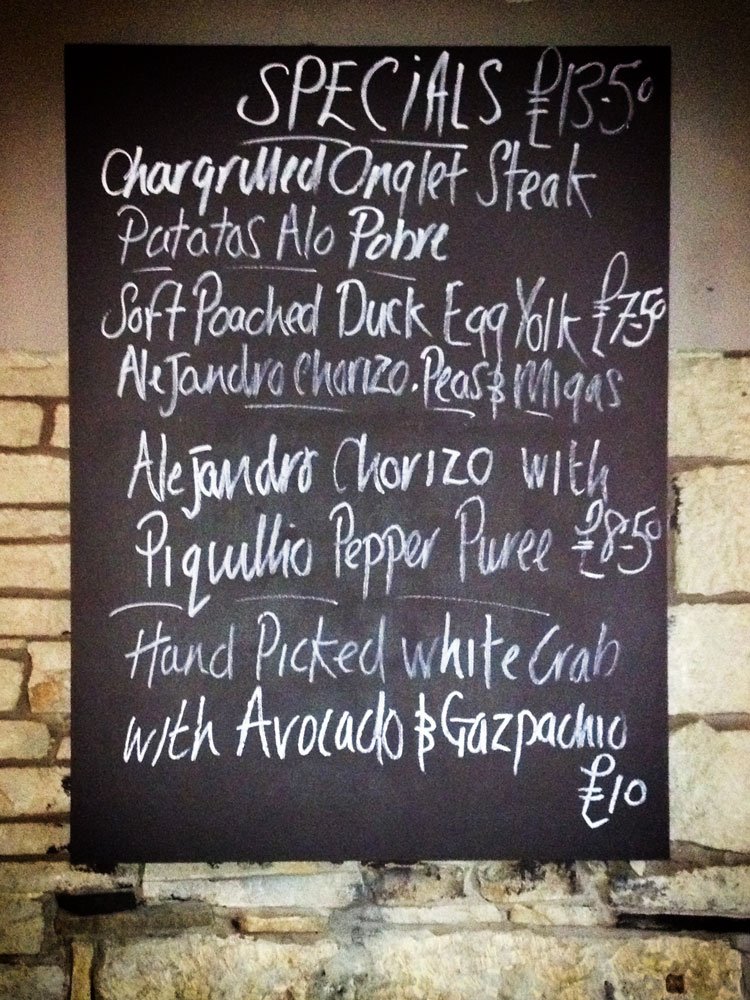 SPECIALS £13.50
Chargrilled Onglet Steak
Patatas Alo Pobre
Soft Poached Duck Egg Yolk £7.50
Alejandro Chorizo. Peas & Migas
Alejandro Chorizo with
Piquillio Pepper Puree £8.50
Hand Picked white Crab
with Avocado & Gazpachio
£10